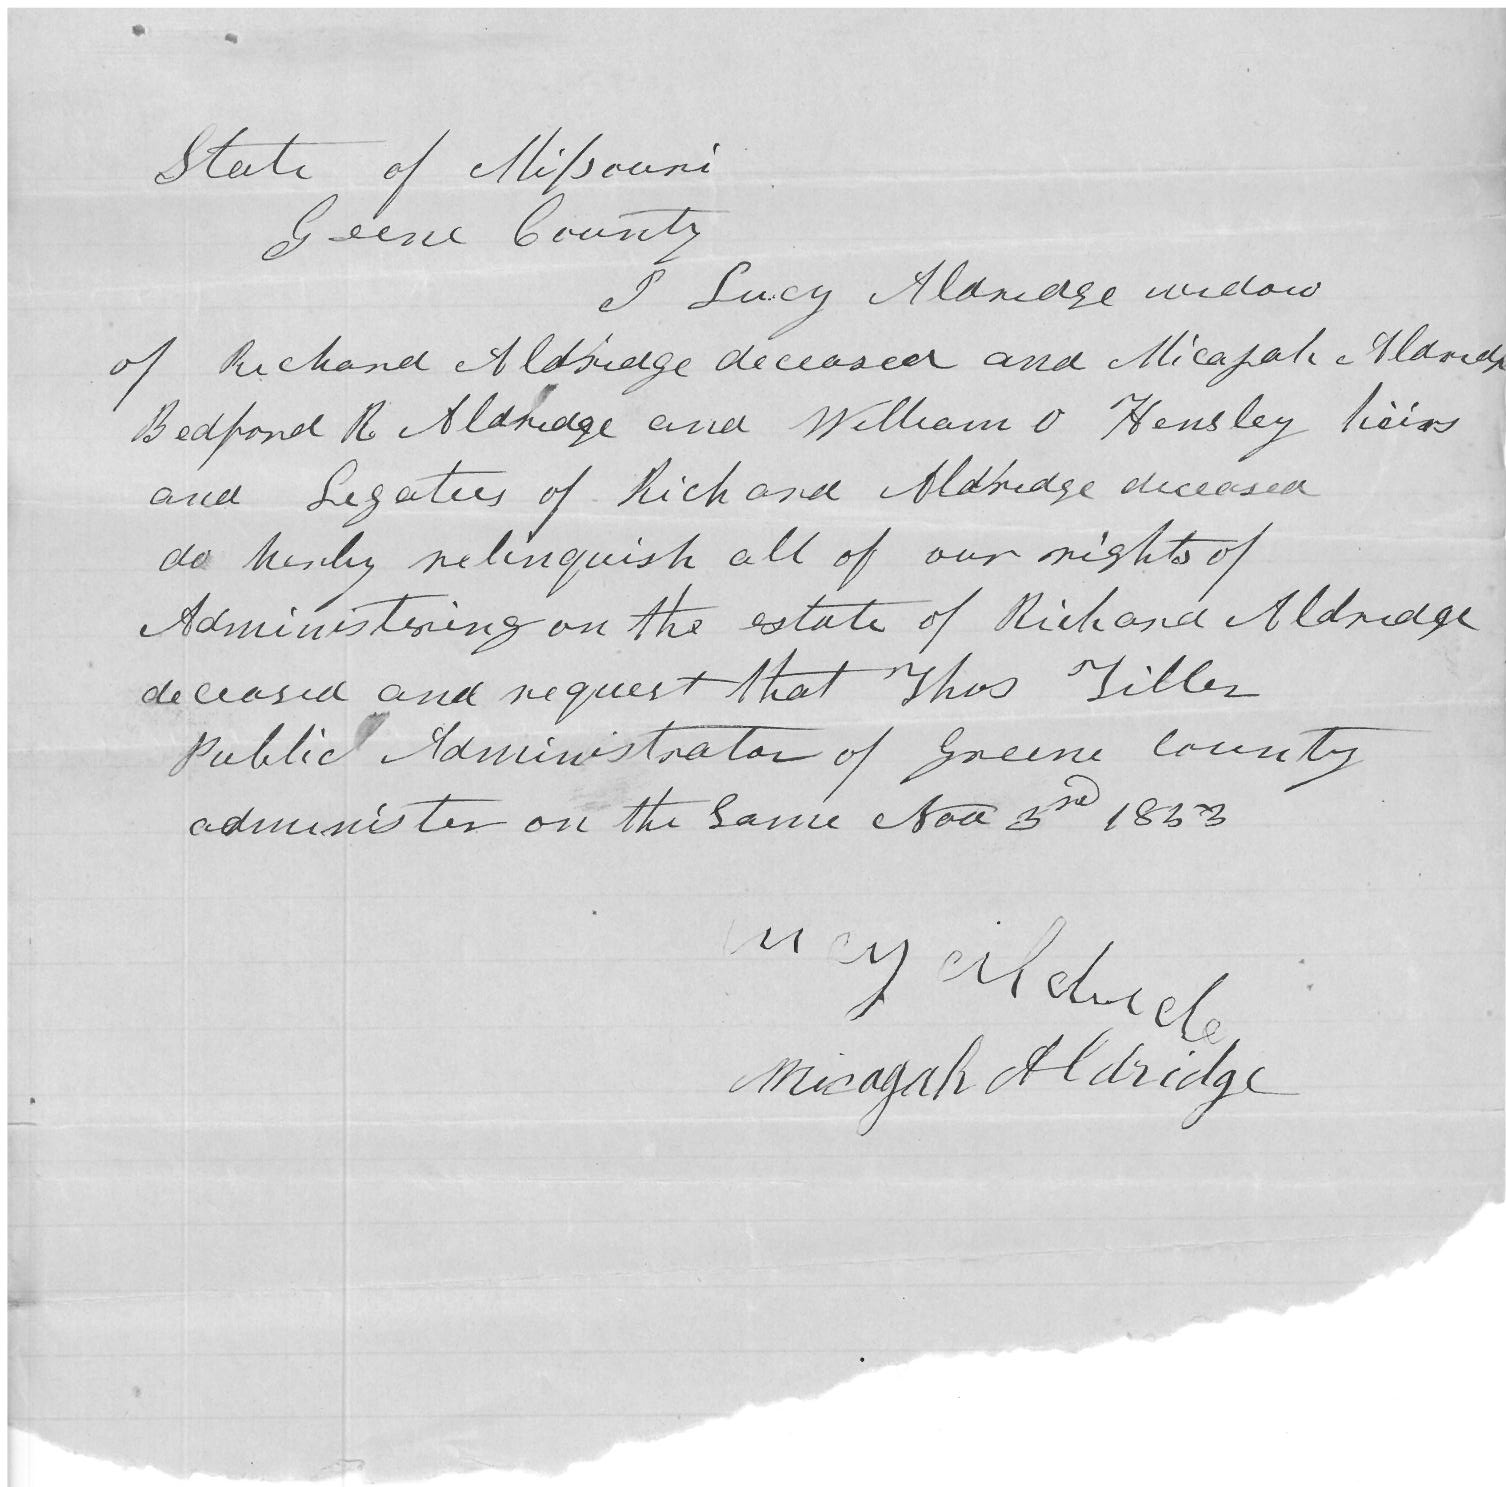 State of Missouri
Geene County
I Lucy Aldredge widow
of Richard Aldridge deceased and Micajah Aldredge
Bedford R Aldredge and William O Hensley heirs
and Legatees of Richard Aldridge deceased
do hereby relinquish all of our rights of
Administering on the estate of Richard Aldredge
deceased and request that Thos Tiller
Public Administrator of Greene County
administer on the Same Nov 3rd
Micagah Aldridge